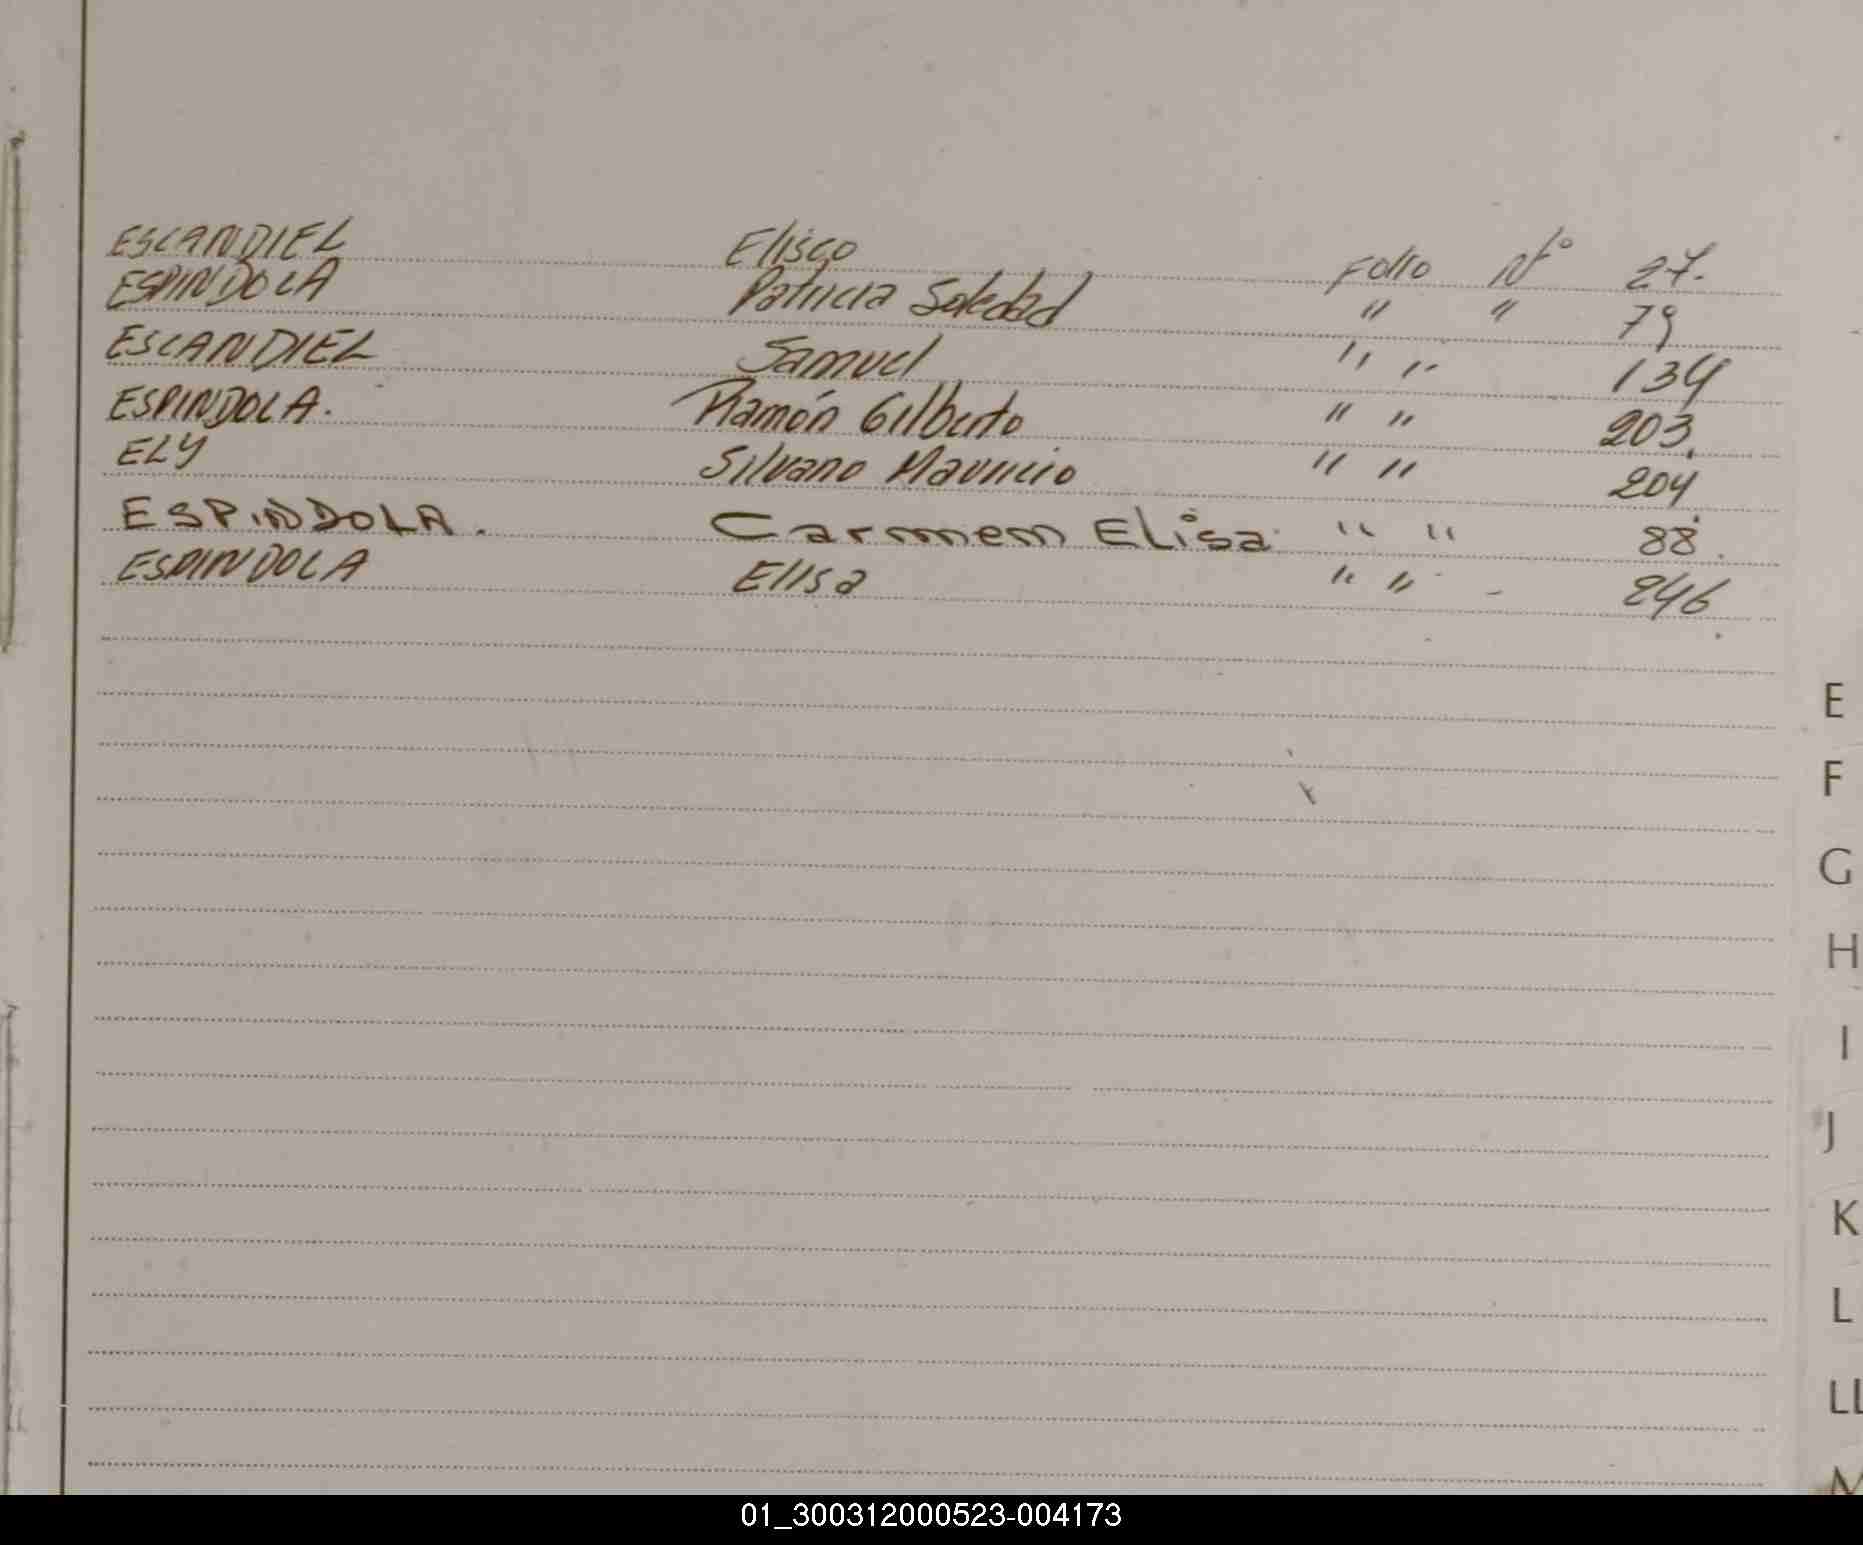 ESCANDIEL Eliseo Folio Nº 27.
ESPINDOLA Patricia Soledad " " 79
ESCANDIEL Samuel " " 134
ESPINDOLA. Ramón Gilberto " " 203.
ELY Silvano Mauricio " " 204
ESPINDOLA. Carmem Elisa. " " 88.
ESPINDOLA Elisa " " - 246.
E
F
G
H
I
J
K
L
LL
M
01_300312000523-004173